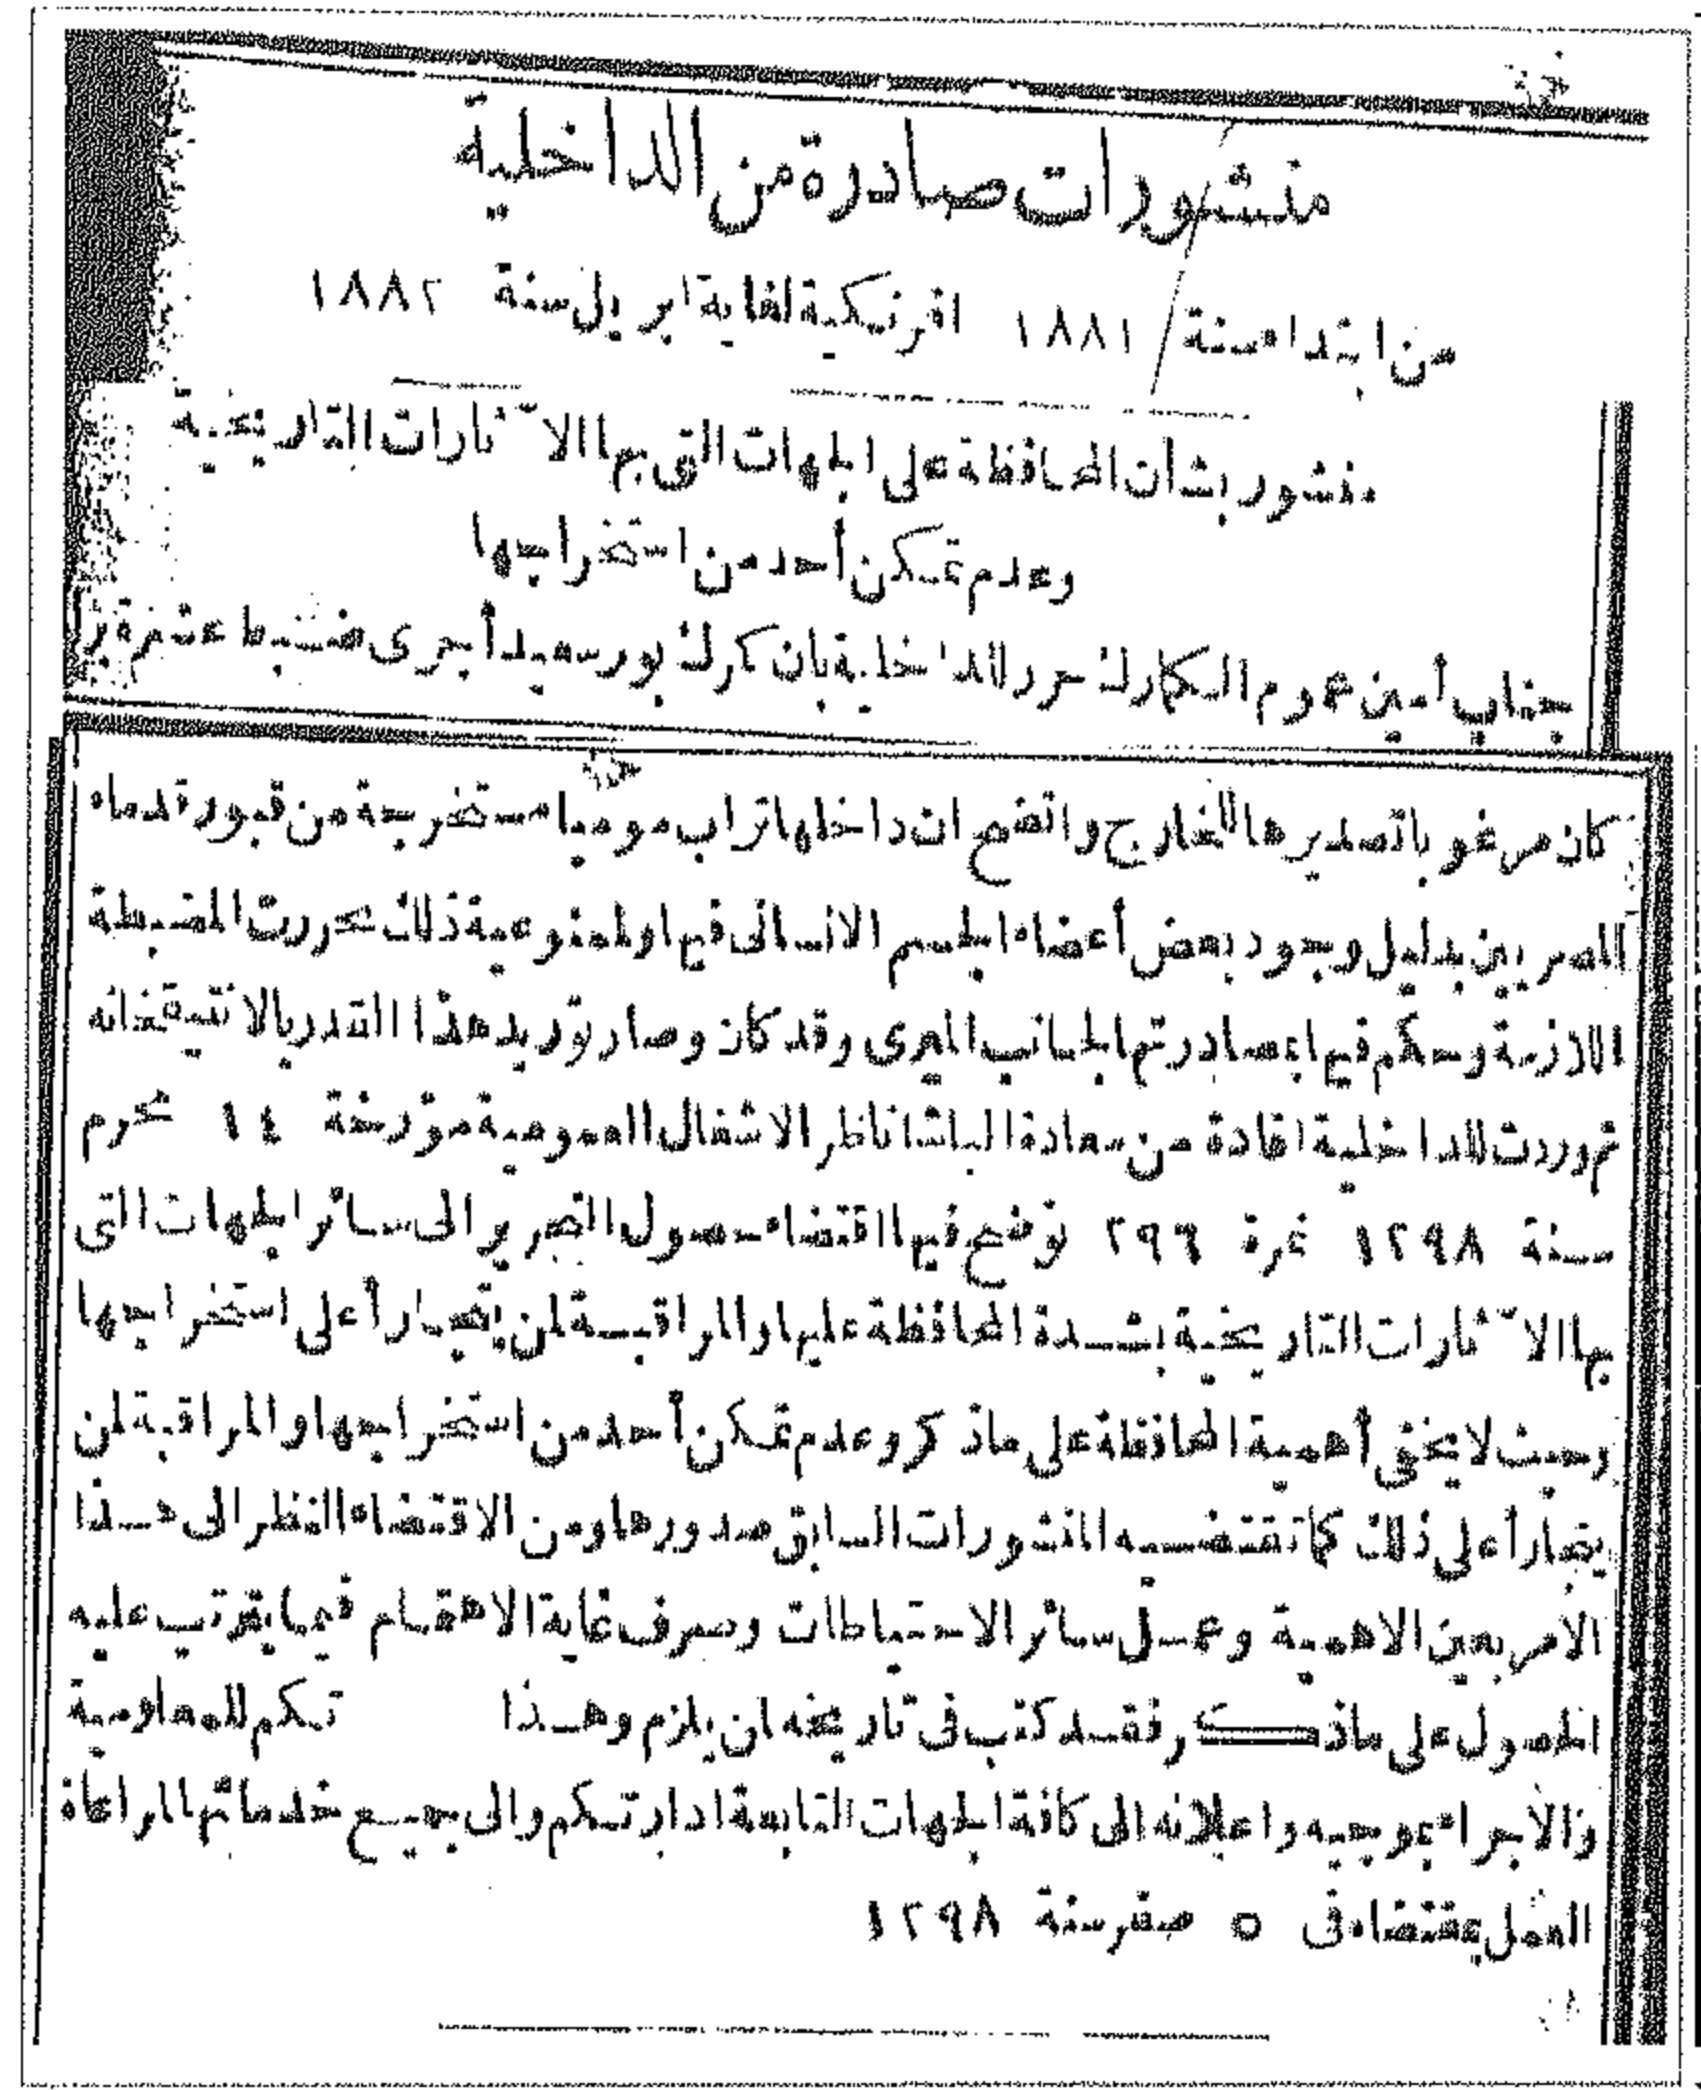 منشورات صادرة من الداخلية
من ابتداء سنة ١٨٨١ افرنكية لغاية ابريل سنة ١٨٨٢
منشور بشأن المحافظة على الجهات التى بها الآثارات التاريخية
وعدم تمكن أحد من استخراجها
جناب أمين عموم الكمارك حرر للداخلية بان كمرك بورسعيد أجرى ضبط عشرة
كان مرغوبا تصديرها للخارج واتضح ان داخلها تراب موميا مستخرجة من قبور قدماء
المصريين بدليل وجود بعض أعضاء الجسم الانسانى فيها ولممنوعية ذلك تحررت المضبطة
اللازمة وحكم فيها بمصادرتها لجانب الميرى وقد كان وصار توريد هذا القدر بالانتيقخانه
ثم وردت للداخلية افادة من سعادة الباشا ناظر الاشغال العمومية مؤرخة ١٤ محرم
سنة ١٢٩٨ نمرة ٢٩٦ توضح فيها اقتضاء حصول التحرير الى سائر الجهات التى
بها الآثارات التاريخية بشدة المحافظة عليها والمراقبة لمن يتجارأ على استخراجها
وحيث لا يخفى أهمية المحافظة على ماذكر وعدم تمكن أحد من استخراجها والمراقبة لمن
يتجارأ على ذلك كما تقتضيه المنشورات السابق صدورها ومن الاقتضاء النظر الى هذا
الأمر بعين الاهمية وعمل سائر الاحتياطات وصرف غاية الاهتمام فيما يترتب عليه
الحصول على ماذكر فقد كتب فى تاريخه لمن يلزم وهذا تكم للمعلومية
والاجراء بموجبه واعلانه الى كافة الجهات التابعة ادارتكم والى جميع خدماتها لمراعاة
العمل بمقتضاه فى ٥ صفر سنة ١٢٩٨